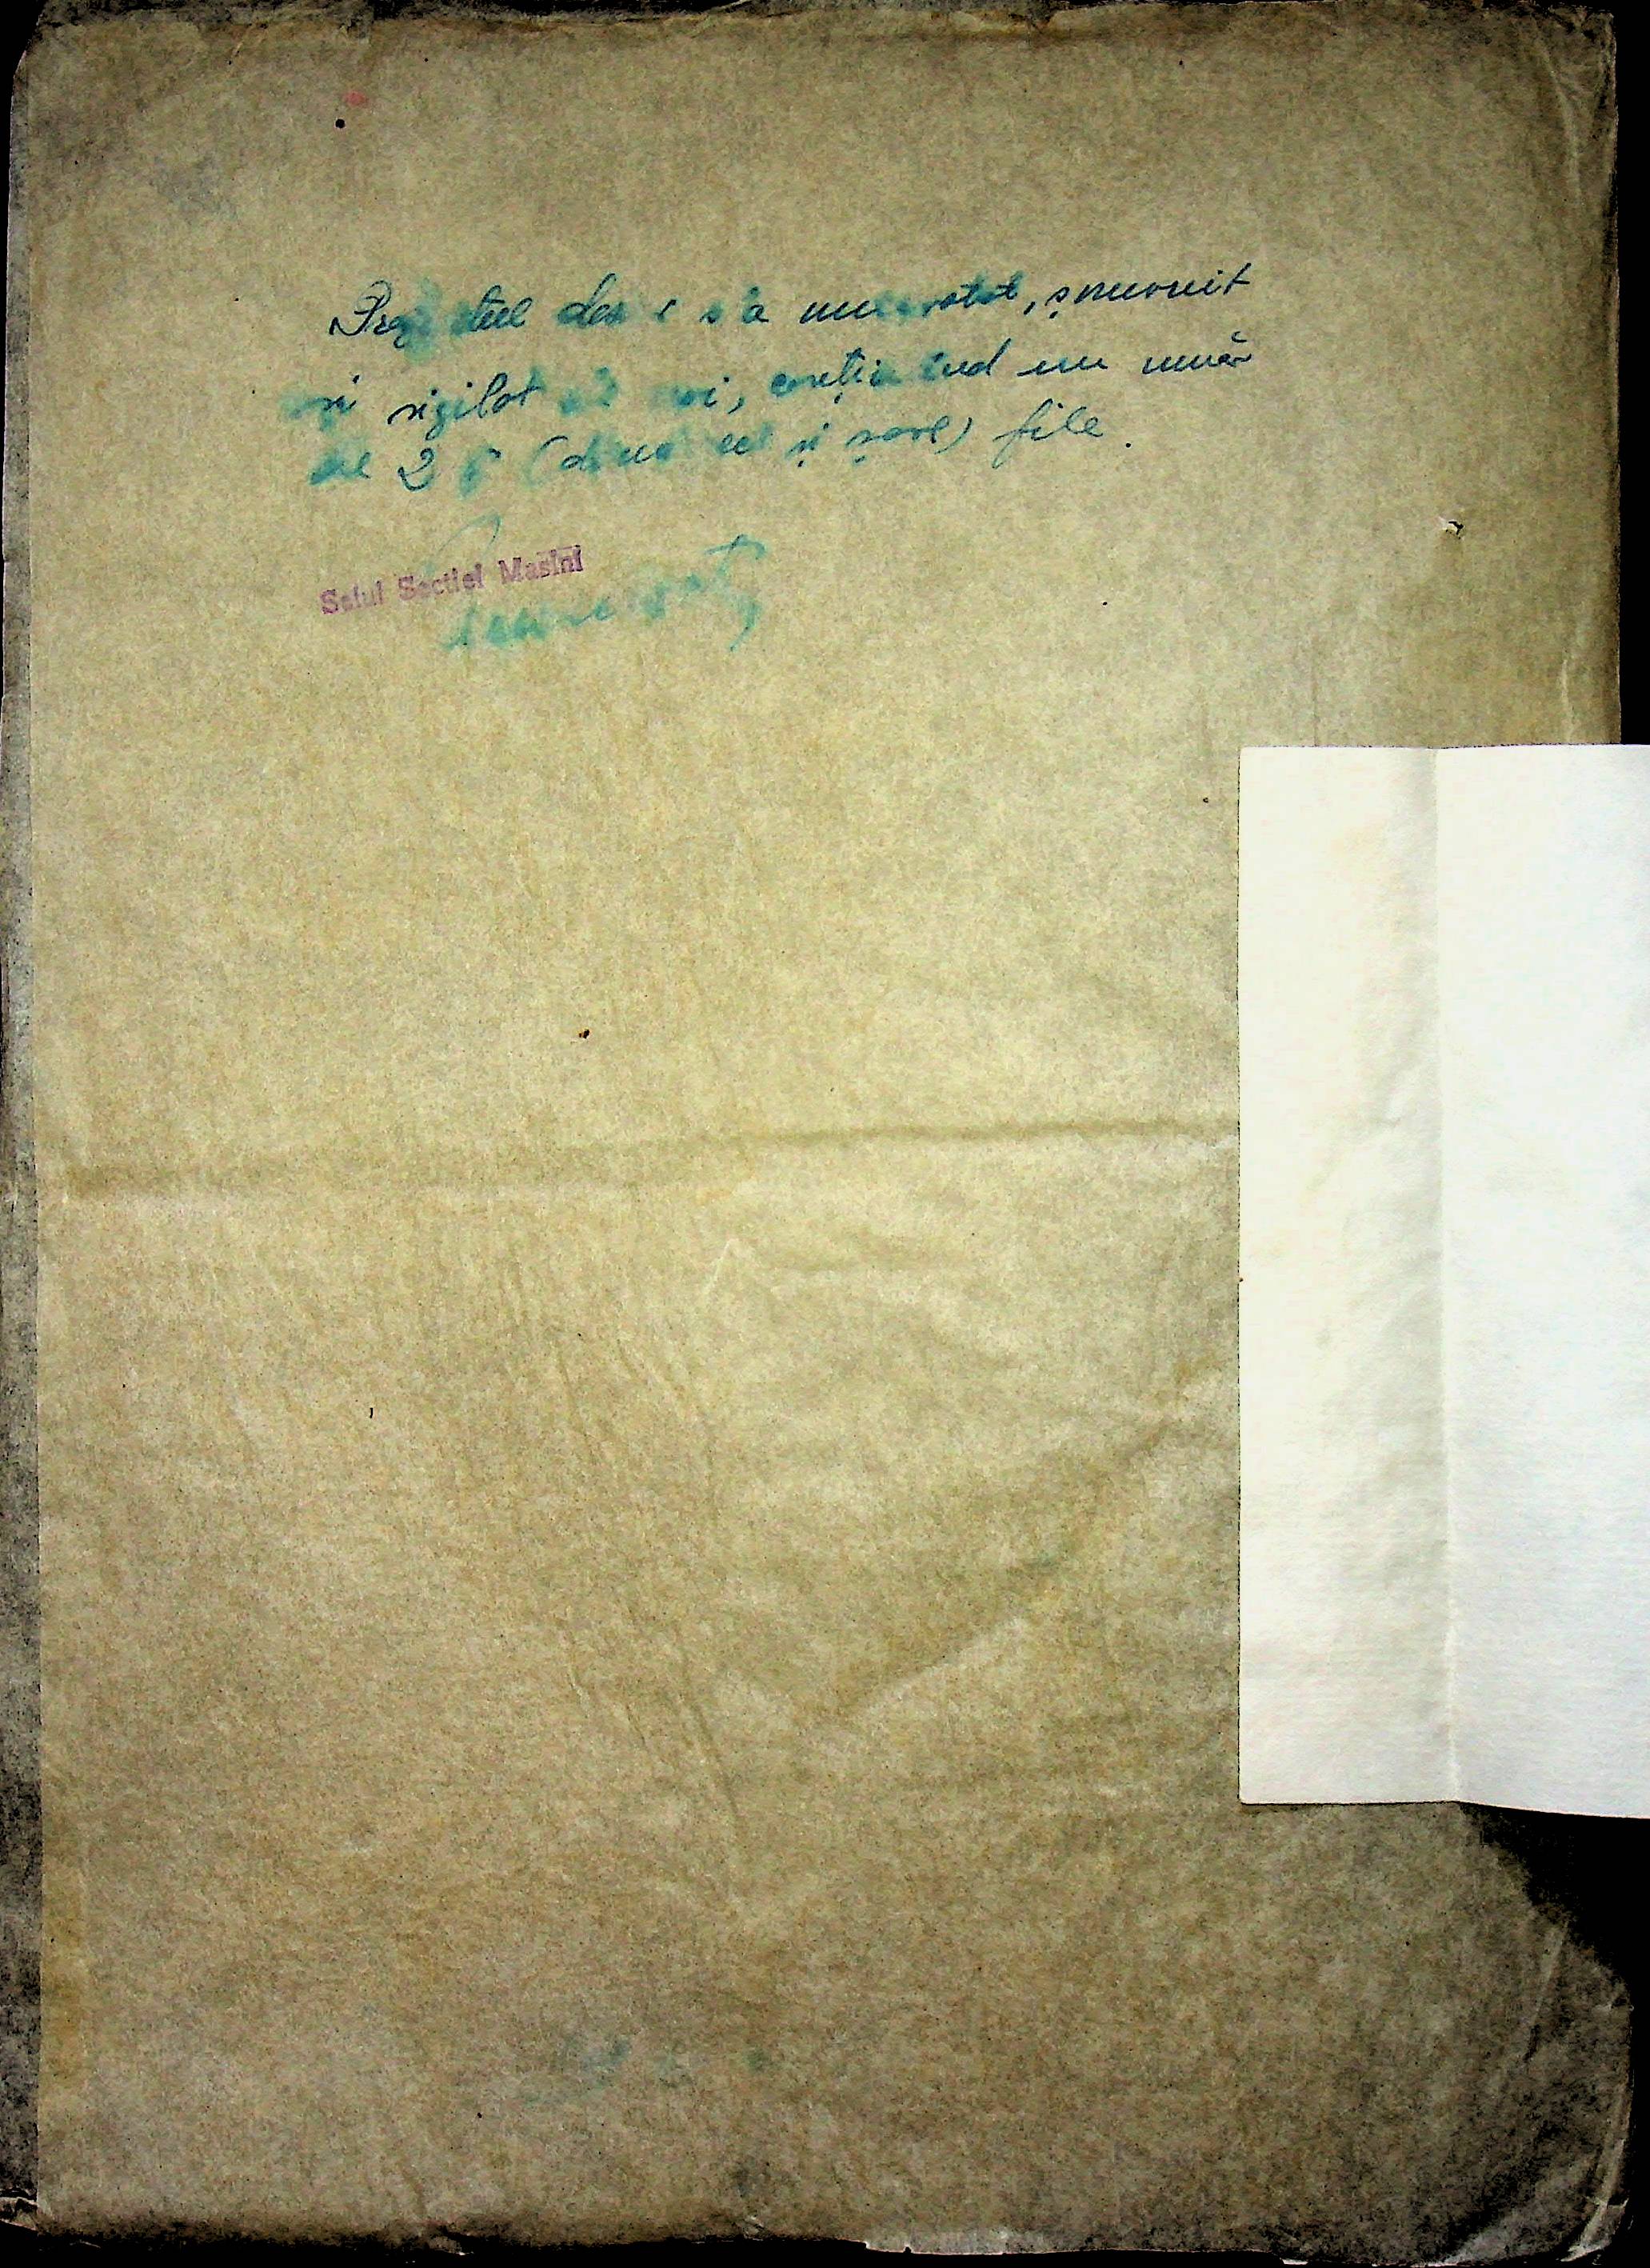 Registrul de s'a numerotat, șnuruit
și sigilat de noi, conținând un număr
de 26 (douăzeci și șase) file.
Șeful Secției Masini